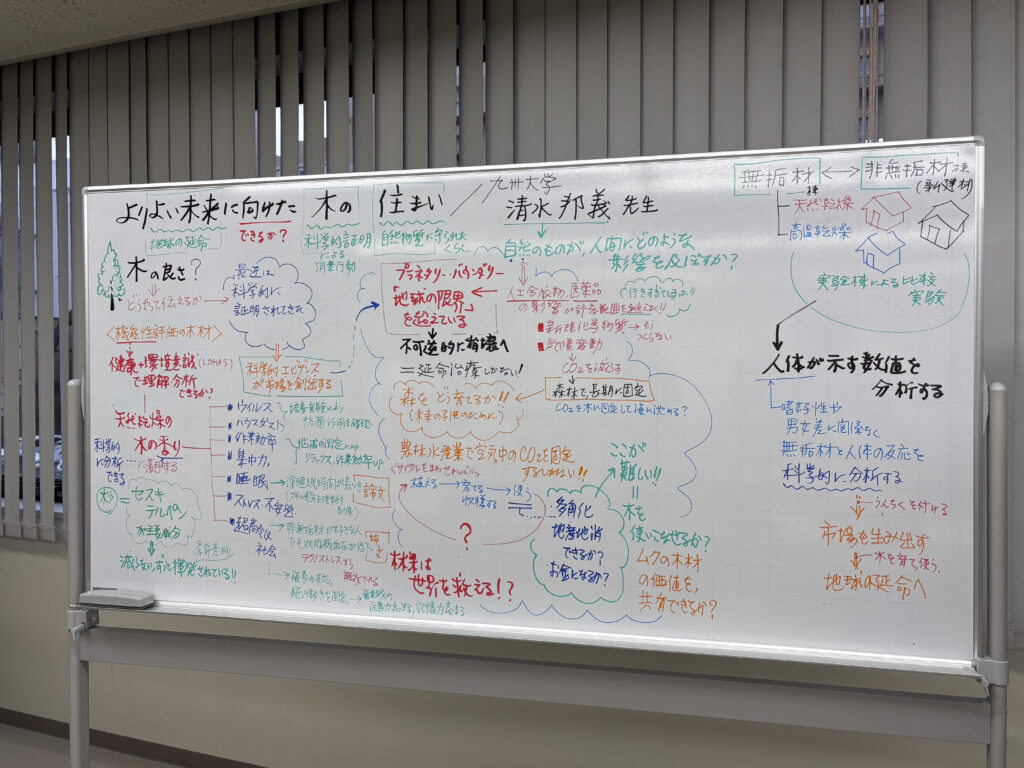 よりよい未来に向けた 木の 住まい // 九州大学 清水邦義 先生
地球の延命
できるか?
科学的証明
による
消費行動
自然物質に守られた
くらし
木の良さ?
どうやって伝えるか
最近は
科学的に
証明されてきた
〈機能性評価の木材〉
健康・環境意識(LOHAS)
で理解分析
できるか?
科学的エビデンス
が市場を創出する
天然乾燥の
木の香り
に着目する
科学的
に分析
できる
ウイルス
ハウスダスト
作業効率
集中力
睡眠
ストレス・不安感
超高令化
社会
リラックス、作業効率UP
論文
特定
非無垢材だけでなく
テクノストレスから
解放される
脳の動きを測定
記憶力高まる
杉=セスキ
テルペン
が主要成分
減らない、ずっと揮発されている!!
プラネタリー・バウンダリー
「地球の限界」
を超えている
不可逆的に崩壊へ
=延命治療しかない!
森をどう育てるか!!
(未来の子供のために)
農林水産業で空気中のCO₂を固定
するしかない!!
(サイクルをまわせれば!!)
植える→育てる→使う
収穫する
?
林業は
世界を救える!?
自然のものが、人間にどのような
影響を及ぼすか?
人工合成物、医薬品
の影響が許容範囲を超えた!!
(行きすぎて困った!!)
新規化学物質→もう
つくらない
気候変動
CO₂を減らす
森林で長期に固定
CO₂を木に固定して凄い沈める?
ここが
難しい!!
木を
使いこなせるか?
ムクの木材
の価値を、
共有できるか?
多角化
地産地消
できるか?
お金になるか?
無垢材 ⟷ 非無垢材棟
棟
(新建材)
天然乾燥
高温乾燥
実験棟による比較
実験
人体が示す数値を
分析する
嗜好性や
男女差に関係なく
無垢材と人体の反応を
科学的に分析する
うんちくを付ける
市場を生み出す
木を育て使う
地球の延命へ